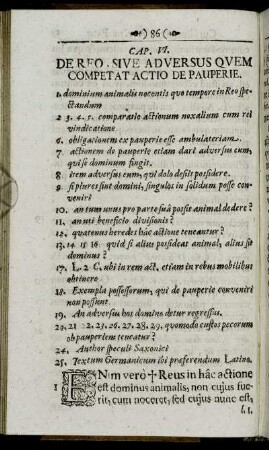 )86(
CAP. VI.
DE REO, SIVE ADVERSUS QVEM
COMPETAT ACTIO DE PAUPERIE.
1. dominium animalis nocentis quo tempore in Reo spe-
ctandum
2. 3. 4. 5. comparatio actionum noxalium cum rei
vindicatione
6. obligationem ex pauperie esse ambulatoriam.
7. actionem de pauperie etiam dari adversus eum,
qui se dominum fingit.
8. item adversus eum, qui dolo desiit possidere.
9. si plures sint domini, singulos in solidum posse con-
veniri
10. an tum unus pro parte sua possit animal dedere?
11. an uti beneficio divisionis?
12. quatenus heredes hac actione teneantur?
13. 14. 15. 16. quid si alius possideat animal, alius sit
dominus?
17. L. 2 C. ubi in rem act. etiam in rebus mobilibus
obtinere
18. Exempla possessorum, qui de pauperie conveniri
non possunt.
19. An adversus hos domino detur regressus.
20. 21. 22. 23. 26. 27. 28. 29. quomodo custos pecorum
ob pauperiem teneatur?
24. Author speculi Saxonici
25. Textum Germanicum ibi præferendum Latino.
ENim verò † Reus in hâc actione
1 est dominus animalis; non cujus fue-
rit, cum noceret, sed cujus nunc est,
l. 1.